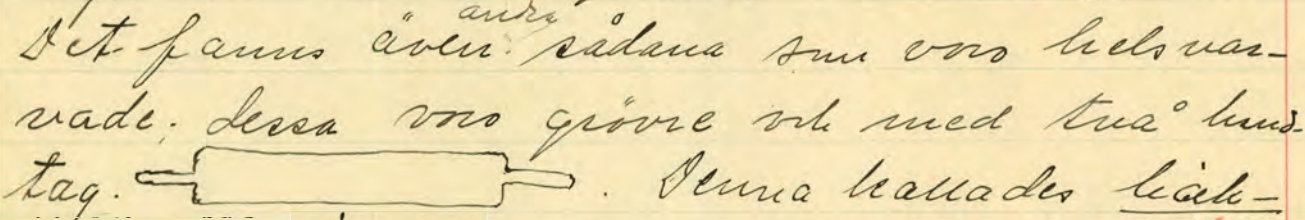 Det fanns även andra sådana som voro helsvar-
vade. dessa voro grövre och med två hand-
tag. . Denna kallades